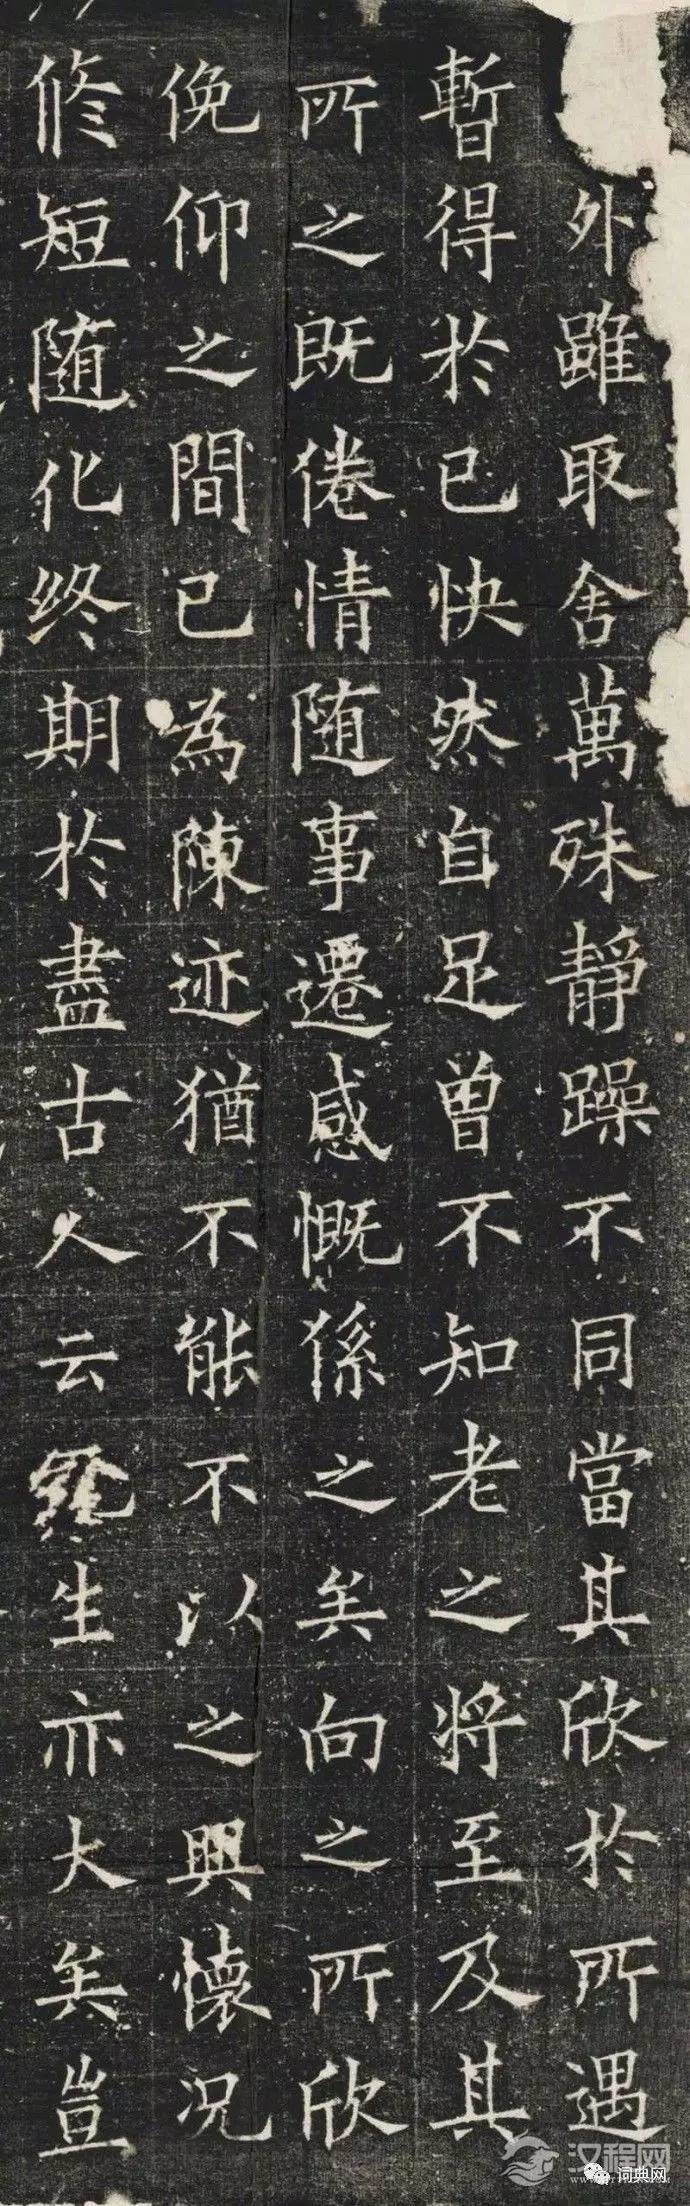 外雖取舍萬殊靜躁不同當其欣於所遇
暫得於己快然自足曾不知老之將至及其
所之既倦情随事遷感慨係之矣向之所欣
俛仰之間已為陳迹猶不能不以之興懷况
脩短随化终期於盡古人云死生亦大矣豈
汉程网
词典网